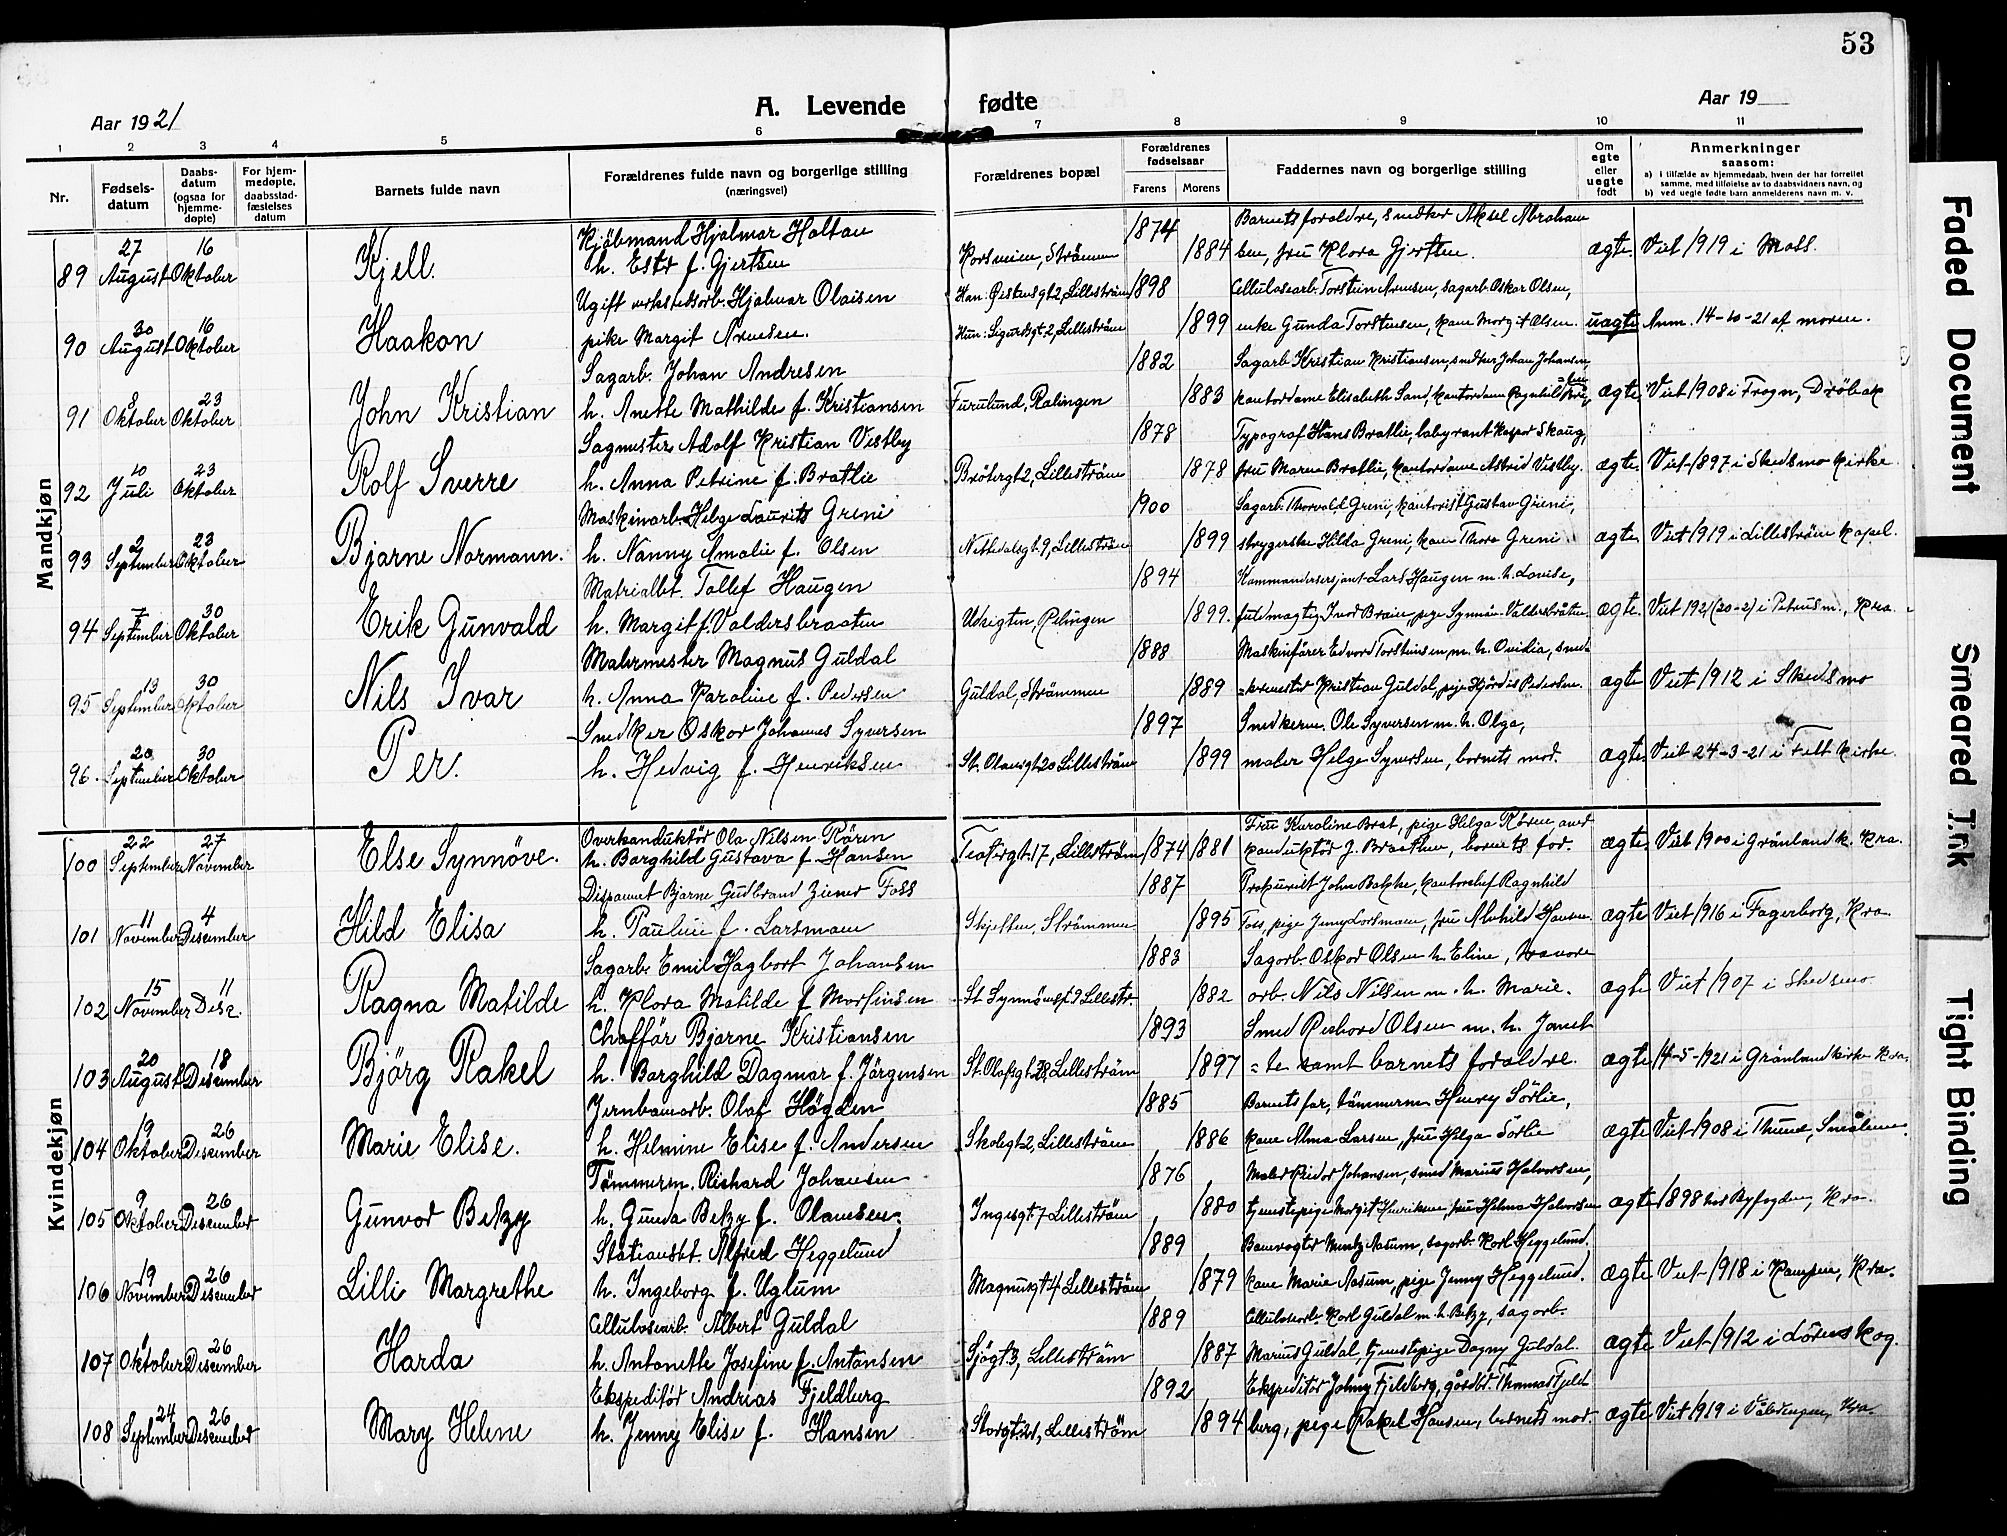 53
Aar 1921
A. Levende fødte
Aar 19
1 2 3 4 5 6 7 8 9 10 11
Nr.
Fødsels-datum
Daabs-datum (ogsaa for hjemme-døpte)
For hjem-medøpte, daabsstad-fæstelses datum
Barnets fulde navn
Forældrenes fulde navn og borgerlige stilling (næringsvei)
Forældrenes bopæl
Forældrenes fødselsaar
Farens Morens
Faddernes navn og borgerlige stilling
Om egte eller uegte født
Anmerkninger
saasom:
a) i tilfælde av hjemmedaab, hvem der har forrettet samme, med tilføielse av to daabsvidners navn, og
b) ved uegte fødte barn anmelderens navn m. v.
Mandkjøn
89 27 August 16 Oktober Kjell.
Kjøbmand Hjalmar Holtan
h. Ester f. Gjertsen
Strømmen 1874 1884
Barnets foraldre, snedker Aksel Abraham
sen, fru Klara Gjertsen.
ægte. Viet 1919 i Moss.
90 30 August 16 Oktober Haakon
Ugift verkstedsarb. Hjalmar Olaisen
pike Margit Arnesen.
Han: Øistensgt 2, Lillestrøm 1898
Hun: Sigurdsgt. 2, Lillestrøm 1899
Cellulosearb. Torstein Arnesen, sagarb. Oskar Olsen,
enke Gunda Torstensen, kone Margit Olsen.
uægte Anm. 14-10-21 af moren.
91 8 Oktober 23 Oktober John Kristian
Sagarb. Johan Andresen
h. Anette Mathilde f. Kristiansen
Furulund, Rælingen 1882 1883
Sagarb. Kristian Kristiansen, snedker Johan Johansen,
kontordame Elisabeth Sand, kontordame Ragnhild
ægte. Viet 1908 i Frogn, Drøbak
92 10 Juli 23 Oktober Rolf Sverre
Sagmester Adolf Kristian Vestby
h. Anna Petrine f. Bratlie
Brøtergt 2, Lillestrøm 1878 1878
Typograf Hans Bratlie, fabrikant Kaspar Skaug,
fru Maren Bratlie, kontordame Astrid Vestby.
ægte. Viet 1897 i Skedsmo kirke.
93 2 September 23 Oktober Bjarne Normann.
Maskinarb. Helge Laurits Greni
h. Nanny Amalie f. Olsen
Nittedalsgt. 9, Lillestrøm 1900 1899
Sagarb. Thorvald Greni, kontorist Gustav Greni,
strygerske Hilda Greni, kone Thora Greni
ægte Viet 1919 i Lillestrøm kapel.
94 7 September 30 Oktober Erik Gunvald
Matrialbt. Tollef Haugen
h. Margit f. Valdersbraaten
Udsigten, Rælingen 1894 1899.
Kommandersersjant Lars Haugen m. h. Lovise,
fuldmægtig Braier, pige Synnøve Valdersbråten.
ægte. Viet 1921 (20-2) i Petrus m., Kra.
95 13 September 30 Oktober Nils Ivar
Malermester Magnus Guldal
h. Anna Karoline f. Pedersen
Guldal, Strømmen 1888 1889
Maskinfører Edvard Torstensen, m. h. Ovidia, sned-
=kermester Kristian Guldal, pige Hjørdis Pedersen.
ægte Viet 1912 i Skedsmo
96. 20 September 30 Oktober Per.
Snedker Oskar Johannes Syversen
h. Hedvig f. Henriksen
St. Olavsgt 20 Lillestrøm 1897 1899
Snedkerm. Ole Syversen m. h. Olga,
maler Helge Syversen, barnets mod.
ægte. Viet 24-3-21 i Fett kirke.
Kvindekjøn
100 22 September 27 November Else Synnøve.
Overkonduktør Ola Nilsen Røren
h. Borghild Gustava f. Hansen
Teatergt. 17, Lillestrøm 1874 1881
Fru Karoline Brat, pige Helga Røren
konduktør J. Braathen, barnets for.
ægte. Viet 1900 i Grønland k. Kra.
101 11 November 4 Desember Hild Elisa
Disponent Bjarne Gudbrand Ziener Foss
h. Pauline f. Larsmann
Skjetten, Strømmen 1887 1895
Prokurist John Bakke, kontorchef Ragnhild
Foss, pige Jenny Larsmann, fru Alvhild Hansen.
ægte Viet 1916 i Fagerborg, Kra.
102 15 November 11 Desr. Ragna Matilde
Sagarb. Emil Hagbart Johansen
h. Klara Matilde f. Morfinsen
St. Synnøvesgt 9 Lillestr. 1883 1882
Sagarb. Oskar Olsen h. Eline,
arb. Nils Nilsen m. h. Marie.
ægte Viet 1907 i Skedsmo
103 20 August 18 Desember Bjørg Rakel
Chafför Bjarne Kristiansen
h. Borghild Dagmar f. Jørgensen
St. Olafsgt. 28, Lillestrøm 1893 1897
Smed Rikhard Olsen m. h. Janet
=te samt barnets foraldre.
ægte 14-5-1921 i Grønland kirke Kra.
104 19 Oktober 26 Desember Marie Elise.
Jernbanearb. Olaf Høgden
h. Helmine Elise f. Andersen
Skolegt 2, Lillestrøm 1885 1886
Barnets far, tømmerm. Henry Sørlie,
kone Alma Larsen, fru Helga Sørlie
ægte Viet 1908 i Smålene.
105 9 Oktober 26 Desember Gunvor Betzy
Tømmerm. Richard Johansen
h. Gunda Betzy f. Olaussen.
Ingesgt. 7 Lillestrøm 1876 1880
Maler Reidar Johansen, smed Marius Halvorsen,
tjenestepige Margit Henriksen, fru Helma Halvorsen
ægte 1898 hos Byfogden, Kra.
106 19 November 26 Desember Lilli Margrethe
Stationsbt. Alfred Heggelund
h. Ingeborg f. Uglum
Magnusgt 4 Lillestrøm 1889 1879
Banevogter Aasum, sagarb. Karl Heggelund,
kone Marie Aasum, pige Jenny Heggelund.
ægte Viet 1918 i Kampen, Kra.
107 1 Oktober 26 Desember Harda
Cellulosearb. Albert Guldal
h. Antonette Josefine f. Antonsen
Sjøgt 3, Lillestrøm 1889 1887
Cellulosearb. Karl Guldal m. h. Betzy, sagarb.
Marius Guldal, tjenestepige Dagny Guldal.
ægte Viet 1912 i Lørenskog.
108 24 September 26 Desember Mary Helene
Ekspeditør Andreas Fjeldberg
h. Jenny Elise f. Hansen
Storgt. 21, Lillestrøm 1892 1894
Ekspeditør Johny Fjeldberg, gårdbr. Thomas Fjeld
berg, pige Rakel Hansen, barnets mor
ægte Viet 1919 i Vålerengen, Kra.
Faded Document
Smeared Ink
Tight Binding